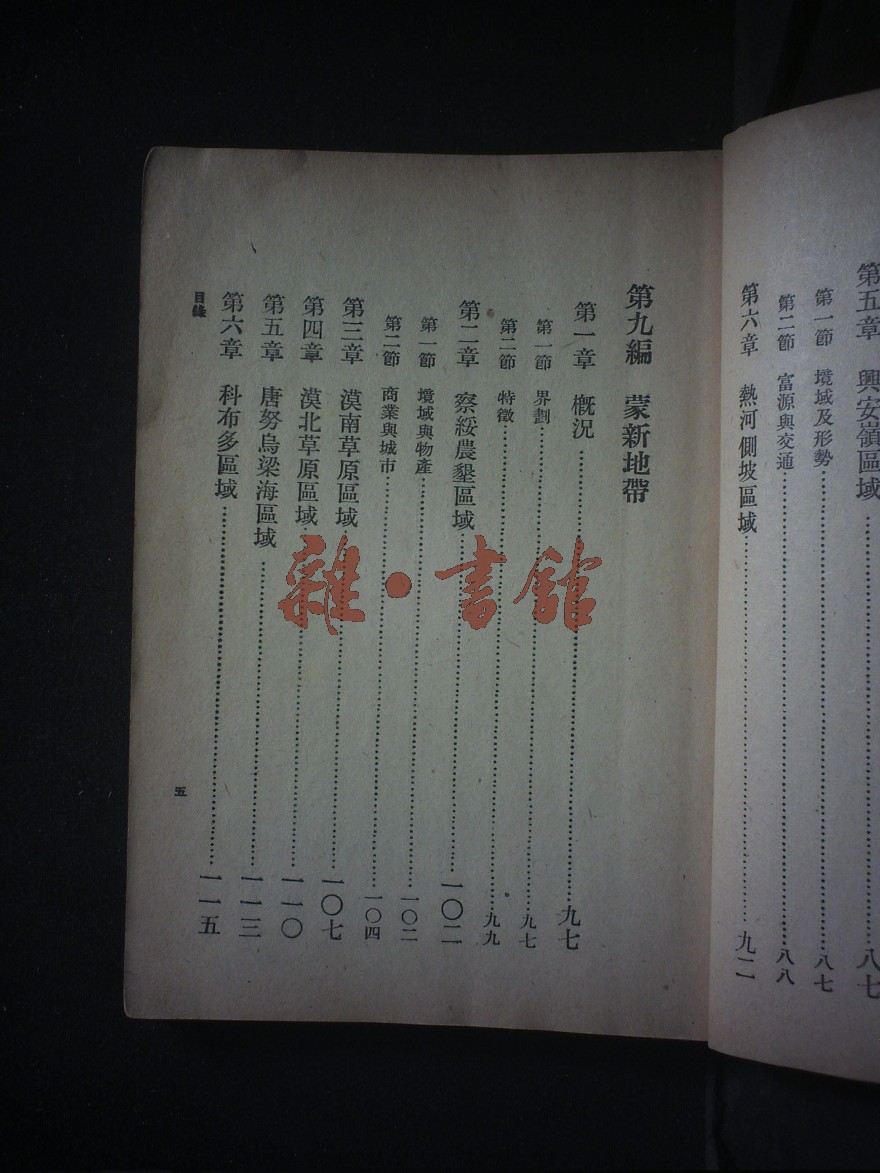 第五章　興安嶺區域………八七
第一節　境域及形勢………八七
第二節　富源與交通………八八
第六章　熱河側坡區域………九二
第九編　蒙新地帶
第一章　概況………九七
第一節　界劃………九七
第二節　特徵………九九
第二章　察綏農墾區域………一〇二
第一節　境域與物產………一〇二
第二節　商業與城市………一〇四
第三章　漠南草原區域………一〇七
第四章　漠北草原區域………一一〇
第五章　唐努烏梁海區域………一一三
第六章　科布多區域………一一五
目錄
五
雜·書館